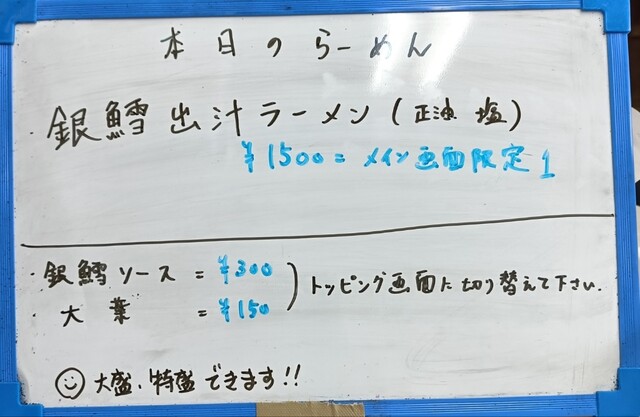 本日のらーめん
・銀鱈出汁ラーメン(正油 塩)
¥1500=メイン画面限定1
・銀鱈ソース=¥300
・大葉=¥150
トッピング画面に切り替えて下さい.
大盛、特盛できます!!